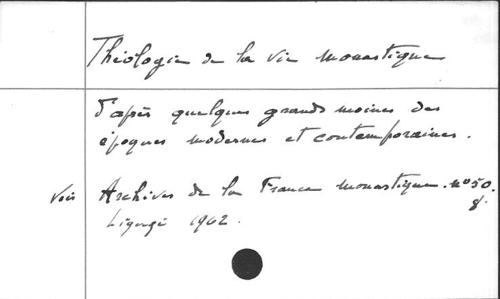 Théologie de la vie monastique
d'après quelques grands moines des
époques modernes et contemporaines.
voir Archives de la France monastique. nº 50.
8.
Ligugé 1962.